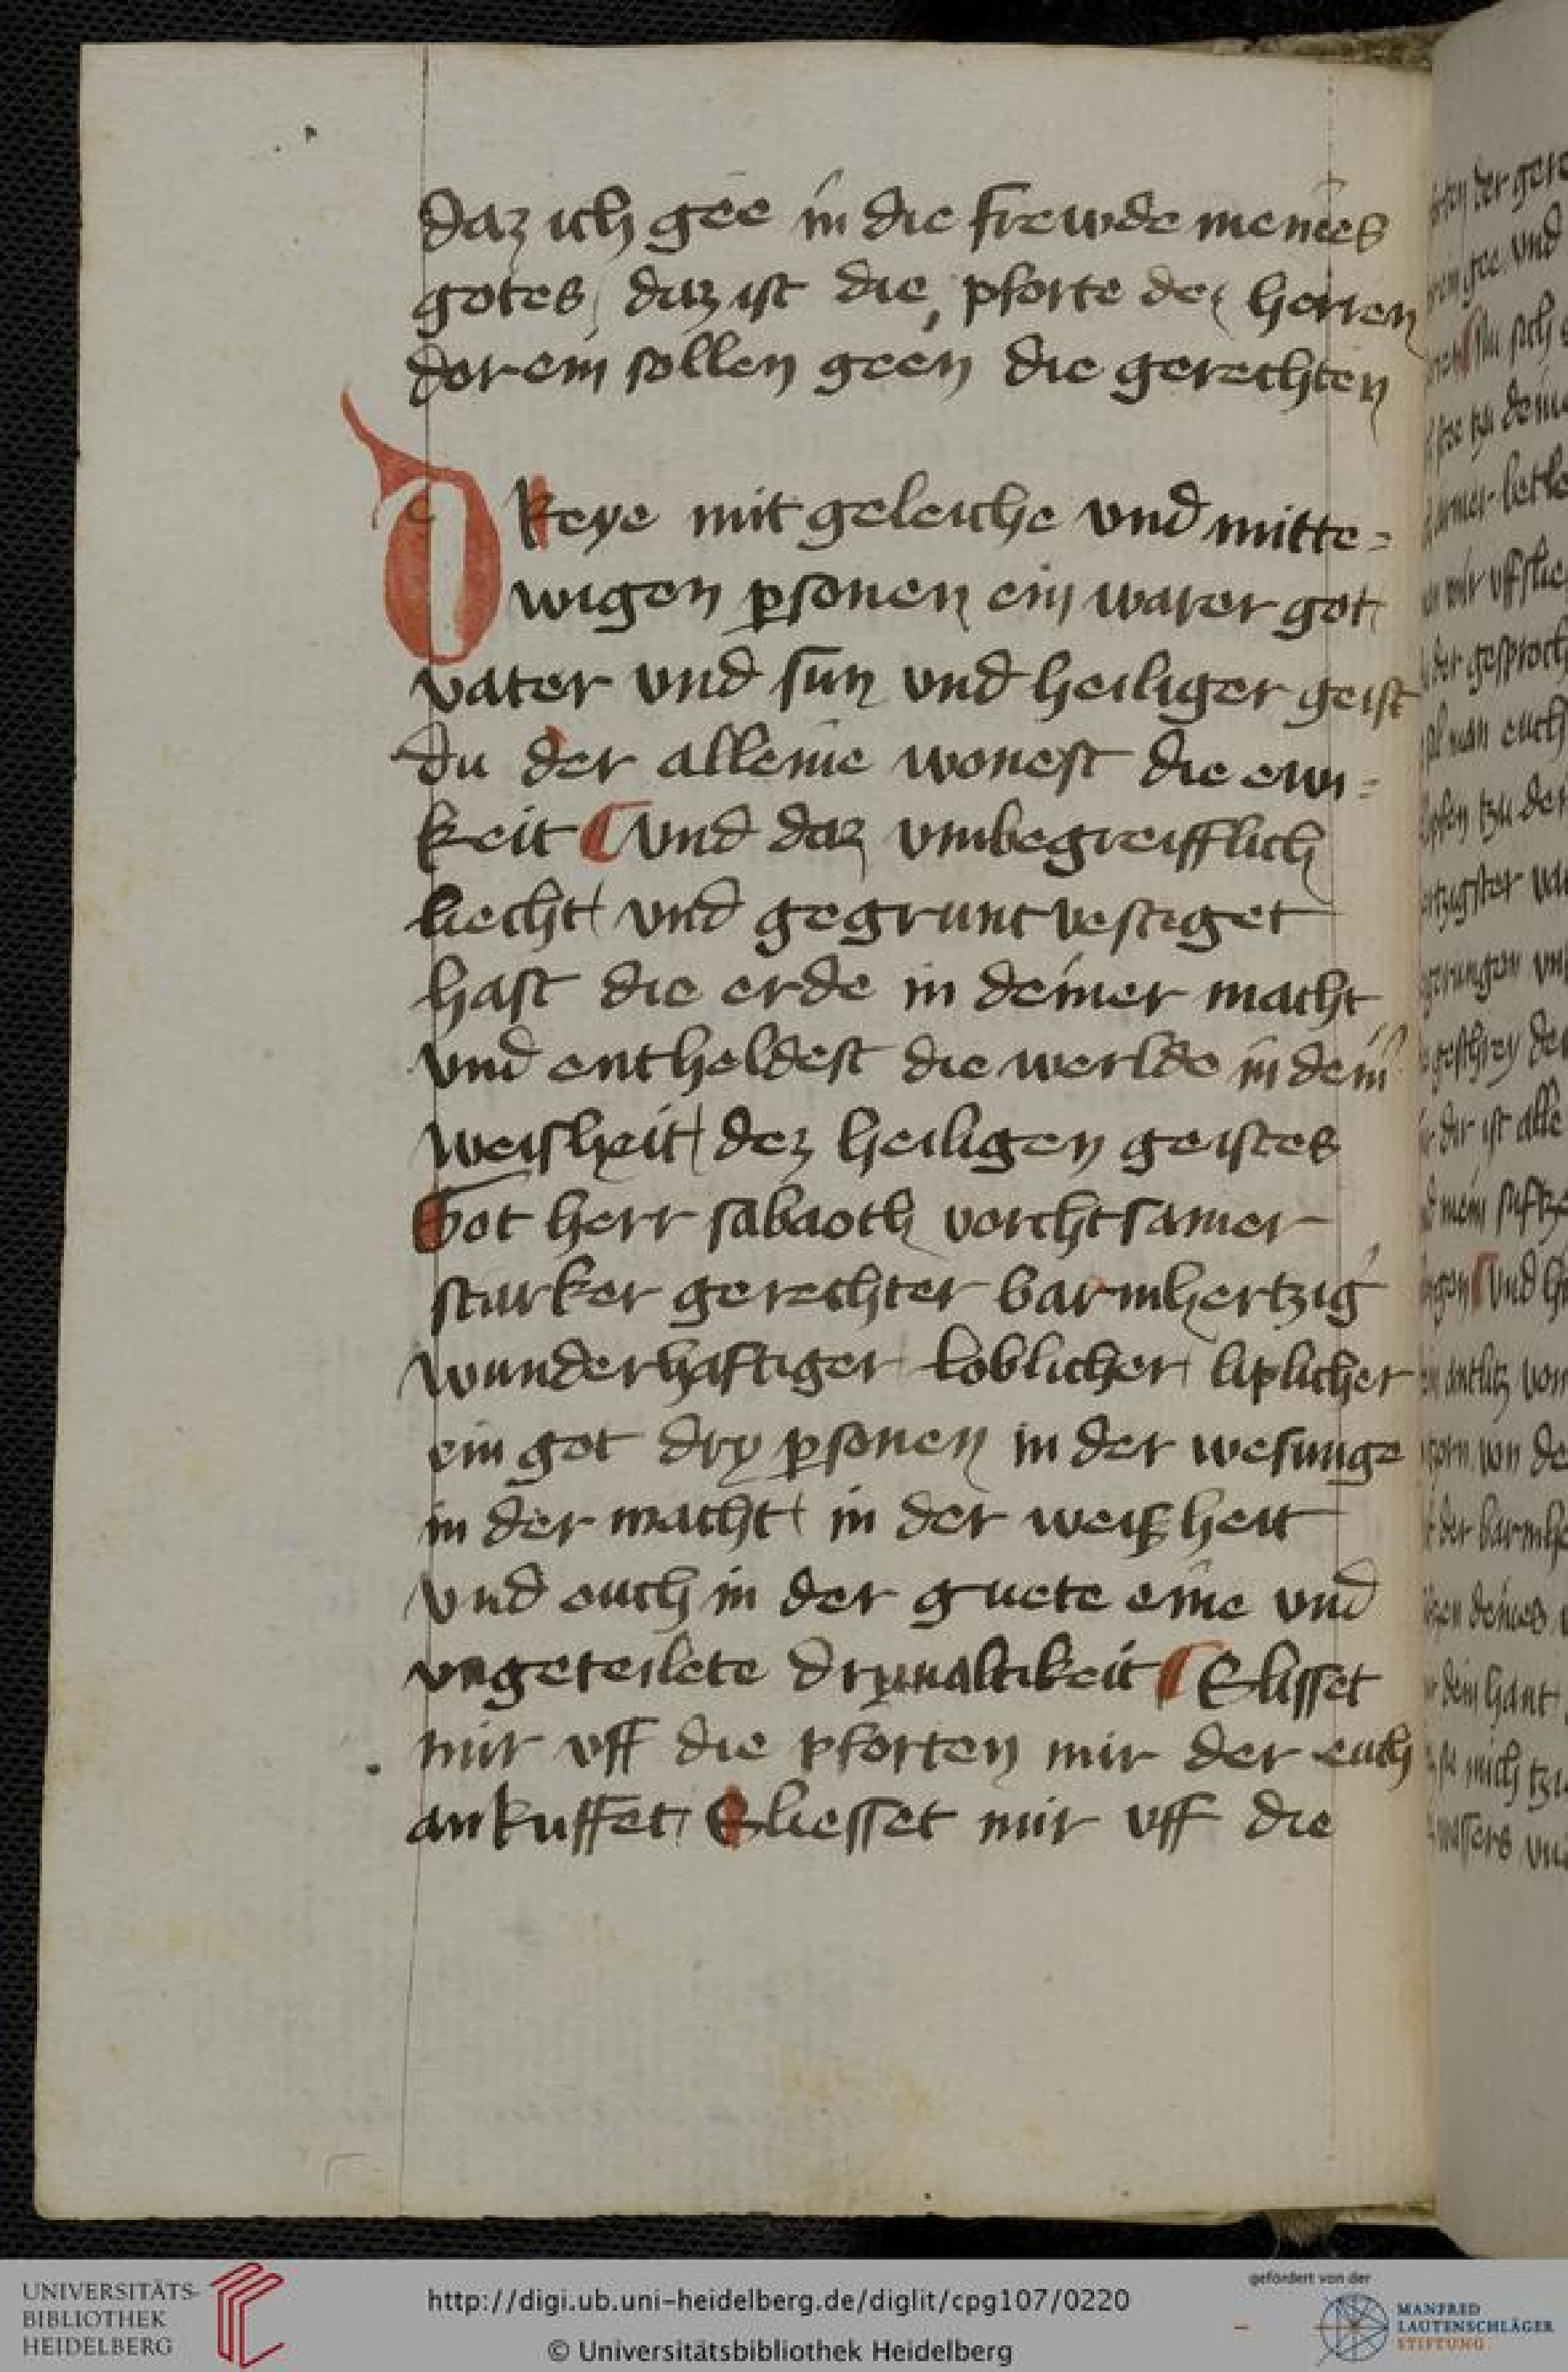 daz ich gee in die frewde meines
gotes daz ist die pforte der herren
dor ein sollen geen die gerechten
Dreye mit geleiche vnd mitte=
wigen psonen ein warer got
vater vnd sun vnd heiliger geist
du der alleine wonest die ewi=
keit vnd daz vmbegreifflich
liecht vnd gegruntvestiget
hast die erde in deiner macht
vnd entheldest die werlde in dein
weisheit dez heiligen geistes
Got herr sabaoth vorchtsamer
starker gerechter barmhertzig
wunderhaftiger loblicher liplicher
ein got dry psonen in der wesunge
in der macht in der weißheit
vnd ouch in der guete eine vnd
vngeteilete dryualtikeit Slisset
mir vff die pforten mir der euch
an kuffet Sliesset mir vff die
UNIVERSITÄTS-
BIBLIOTHEK
HEIDELBERG
http://digi.ub.uni-heidelberg.de/diglit/cpg107/0220
© Universitätsbibliothek Heidelberg
gefördert von der
MANFRED
LAUTENSCHLÄGER
STIFTUNG